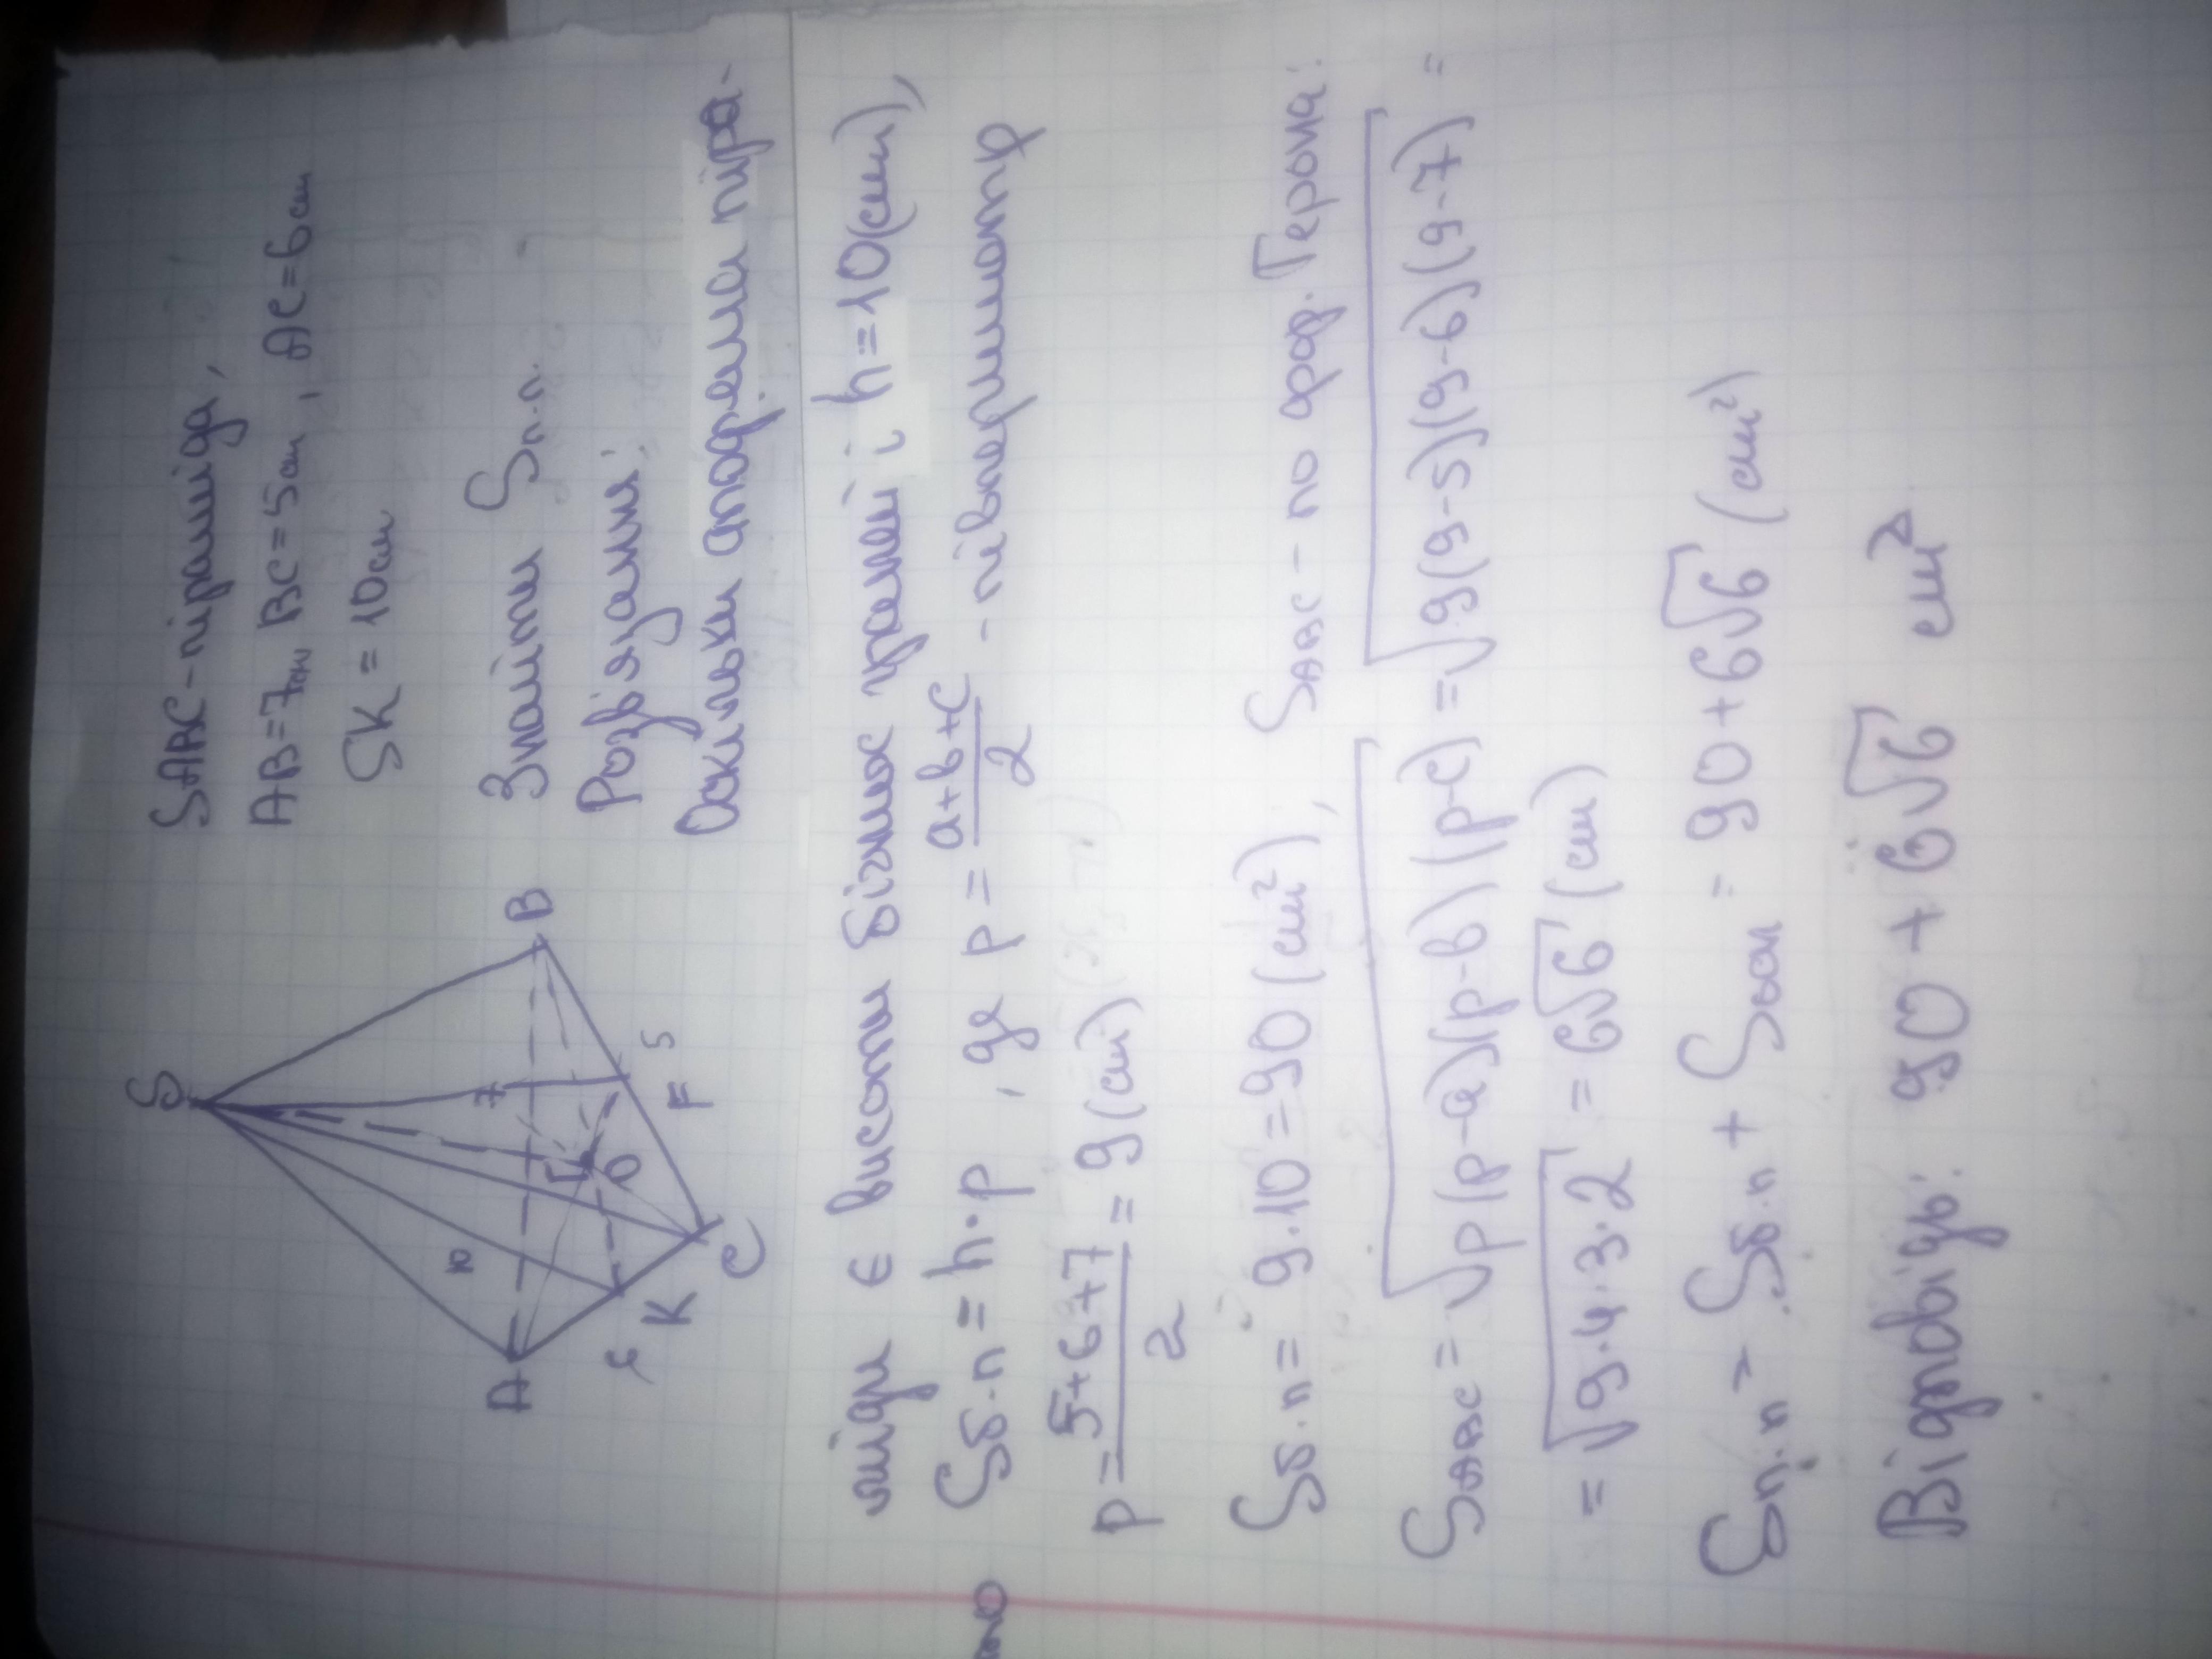 SABC - піраміда,
AB=7см, BC=5см, AC=6см
SK=10см
Знайти Sп.п.
Розв'язання:
Оскільки апофема піра-
S
A
B
C
K
F
O
7
5
10
міди є висоти бічних граней і h=10(см),
то Sб.п=h·p, де p=\frac{a+b+c}{2} - півпериметр
p=\frac{5+6+7}{2}=9(см)
Sб.п=9·10=90(см²), SABC - по фор. Герона:
SABC=√p(p-a)(p-b)(p-c)=√9(9-5)(9-6)(9-7)=
=√9·4·3·2=6√6(см)
Sп.п=Sб.п+Sосн=90+6√6(см²)
Відповідь: 90+6√6 см²